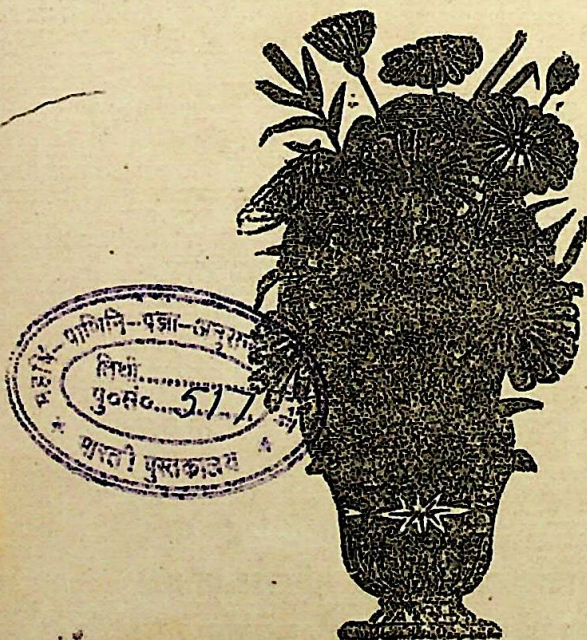 महर्षि-पाणिनि-प्रज्ञा-अनुसं
तिथी..............
पु०सं०...517
* भारती पुस्तकालय *